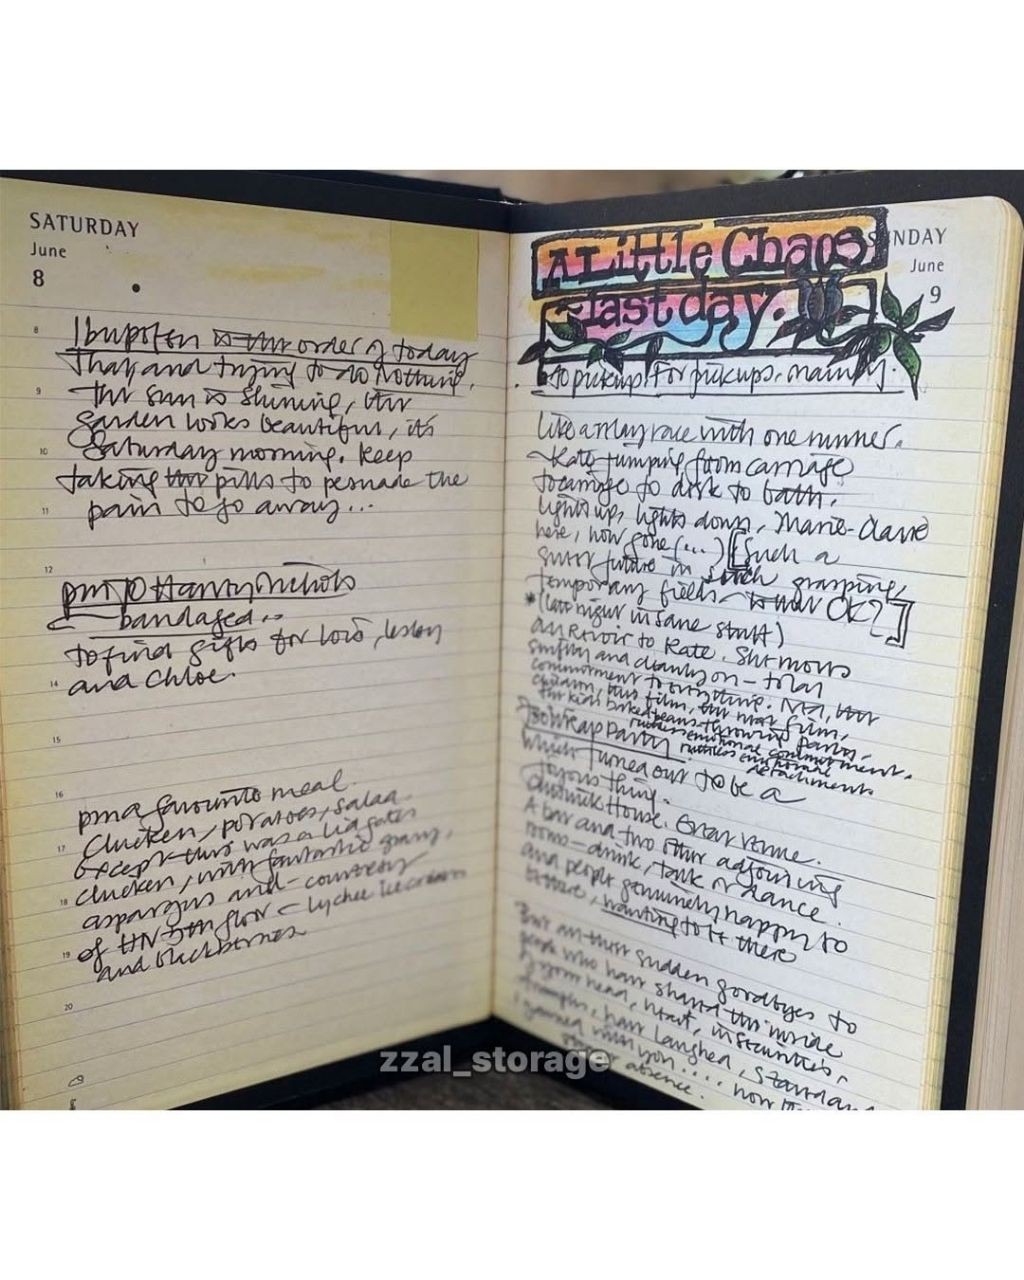 SATURDAY
June
8
8
Ibuprofen is the order of today
That and trying to do nothing.
9
The sun is shining, the
garden looks beautiful, it's
10
Saturday morning. Keep
taking the pills to persuade the
11
pain to go away...
12
pm To Harvey Nichols
bandaged..
to find gifts for Lois, Lesley
14
and Chloe.
15
16
pm a favourite meal.
17
Chicken, potatoes, salad.
except this was a Lidgates
chicken, with fantastic gravy,
18
asparagus and - courtesy
of the 5th floor - lychee ice cream
19
and blackberries
20
A Little Chaos
last day.
SUNDAY
June
9
to pickups for pickups, mainly.
Like a relay race with one runner.
Kate jumping from carriage
to carriage to desk to bath.
Lights up, lights down, Marie-Claire
here, now gone (...) [Such a
future in such grasping,
temporary fields OK?]
*(late night insane stuff)
Au Revoir to Kate. She moves
swiftly and cleanly on - total
commitment to everything. Ned, the
children, this film, the next film,
the kids baked beans throwing party.
ruthless emotional commitment.
ruthless emotional
detachments
To Wrap Party
which turned out to be a
joyous thing.
Chiswick House. Great venue.
A bar and two other adjoining
rooms - drink, talk or dance.
and people genuinely happy to
be there, wanting to be there
But all these sudden goodbyes to
people who have shared the inside
of your head, heart, insecurities,
triumphs, have laughed, stared and
yawned with you.... now the
absence.
zzal_storage